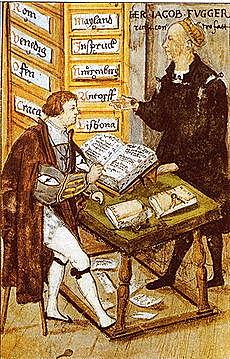 Rom
Venedig
Ofen
Craca
Mayland
Inspruck
Nurenberg
Antorff
Lisbona
ER IACOB FUGGER